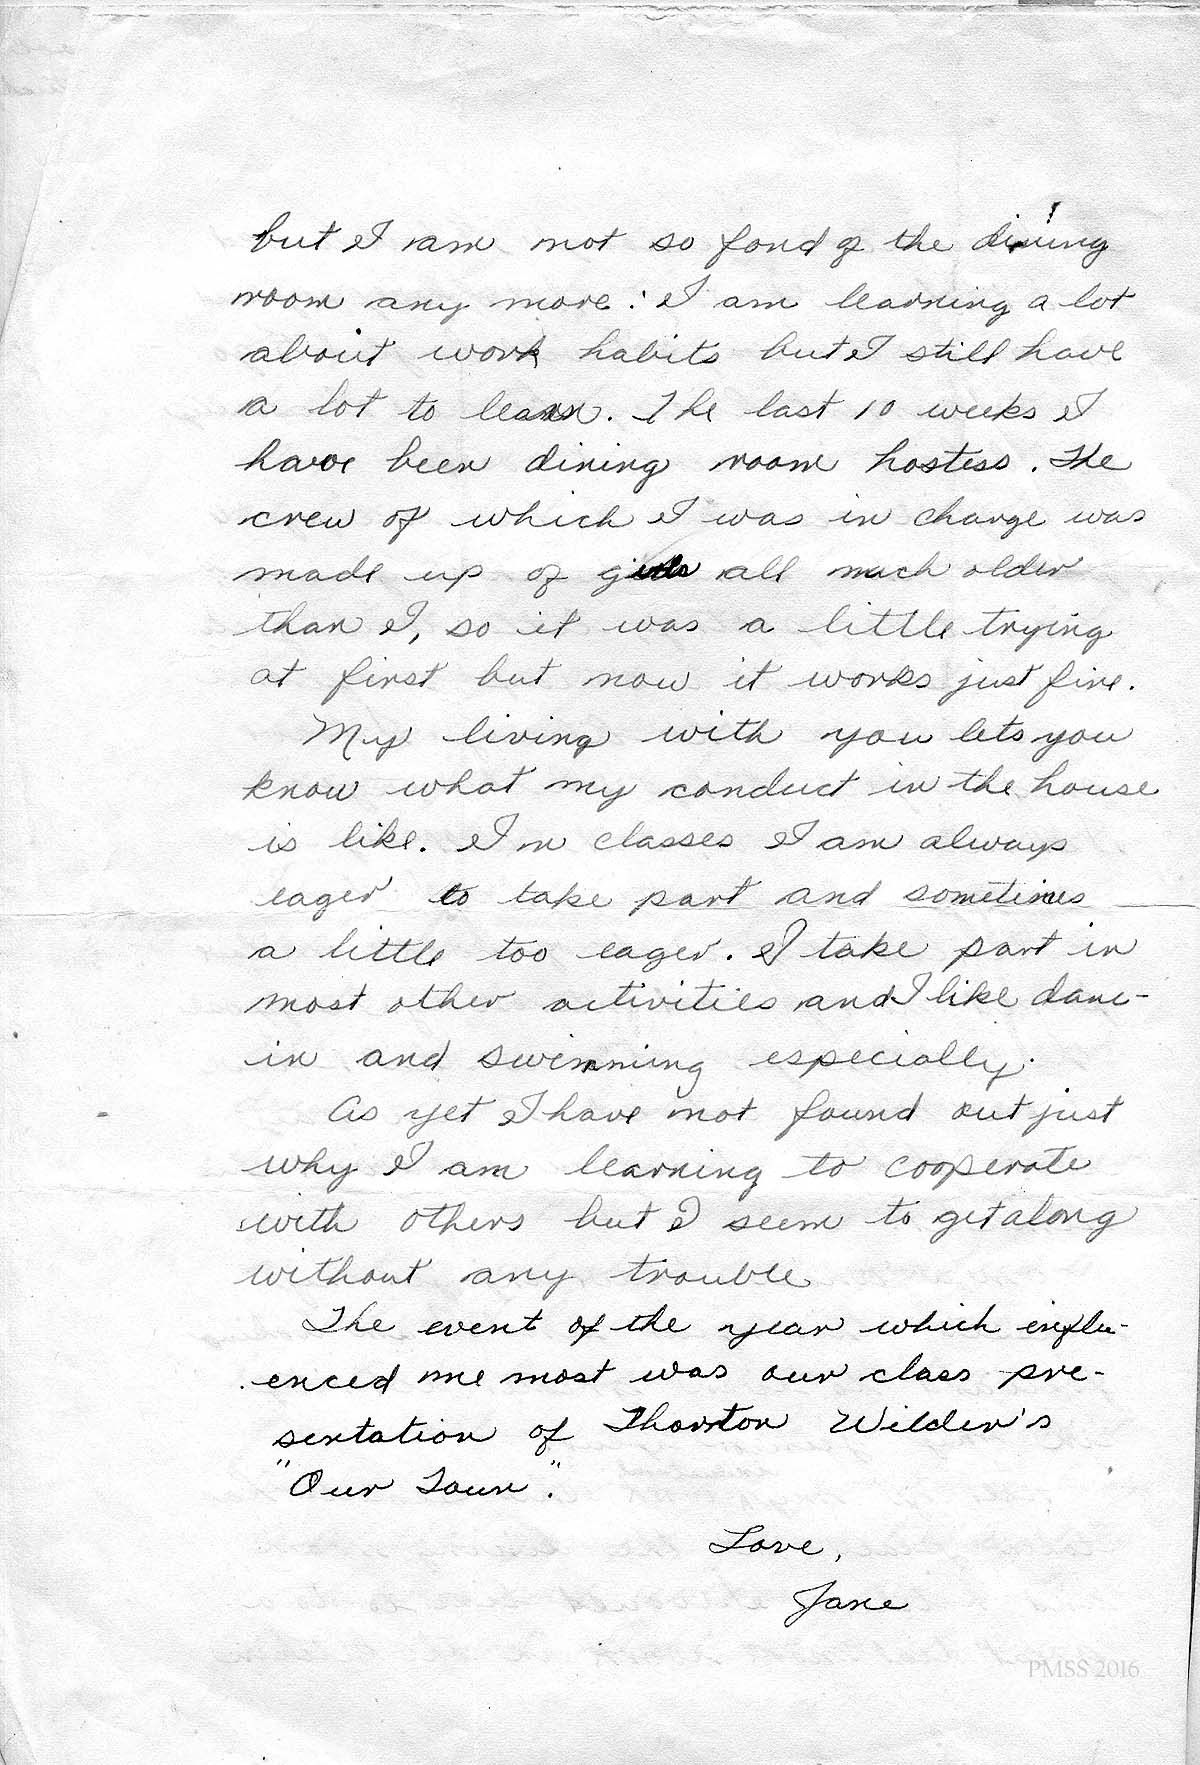 but I am not so fond of the dining
room any more. I am learning a lot
about work habits but I still have
a lot to learn. The last 10 weeks I
have been dining room hostess. The
crew of which I was in charge was
made up of girls all much older
than I, so it was a little trying
at first but now it works just fine.
My living with you lets you
know what my conduct in the house
is like. In classes I am always
eager to take part and sometimes
a little too eager. I take part in
most other activities and I like danc-
in and swimming especially.
As yet I have not found out just
why I am learning to cooperate
with others but I seem to get along
without any trouble
The event of the year which influ-
enced me most was our class pre-
sentation of Thornton Wilder's
"Our Town".
Love,
Jane
PMSS 2016